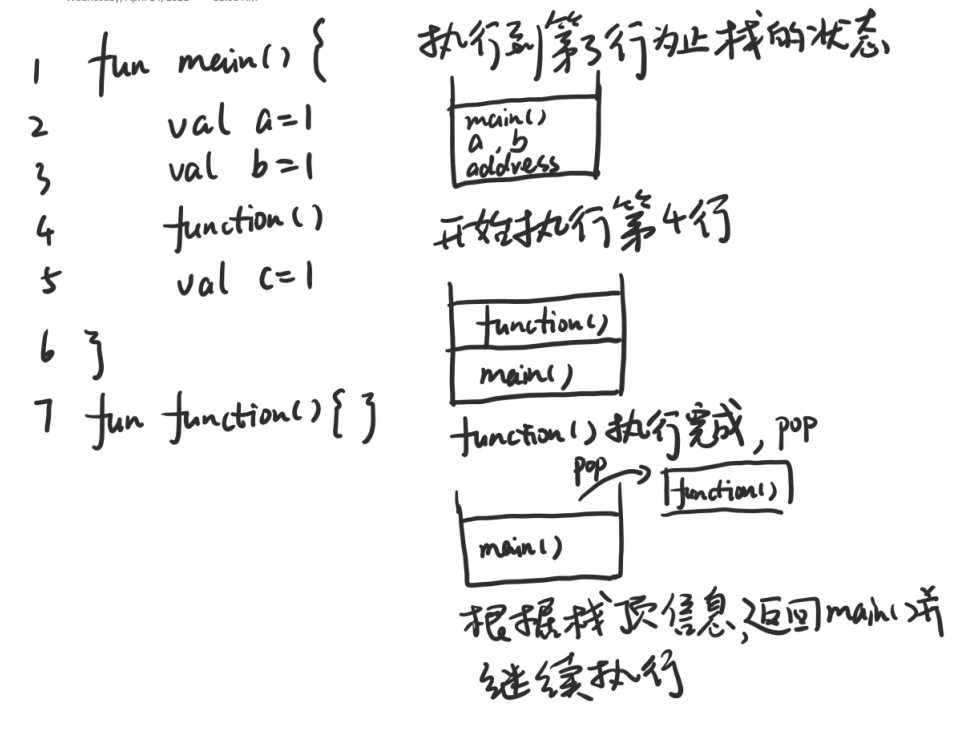 1 fun main() {
2 val a=1
3 val b=1
4 function()
5 val c=1
6 }
7 fun function(){ }
执行到第3行为止栈的状态
main()
a, b
address
开始执行第4行
function()
main()
function()执行完成, pop
pop
function()
main()
根据栈顶信息,返回main()并
继续执行